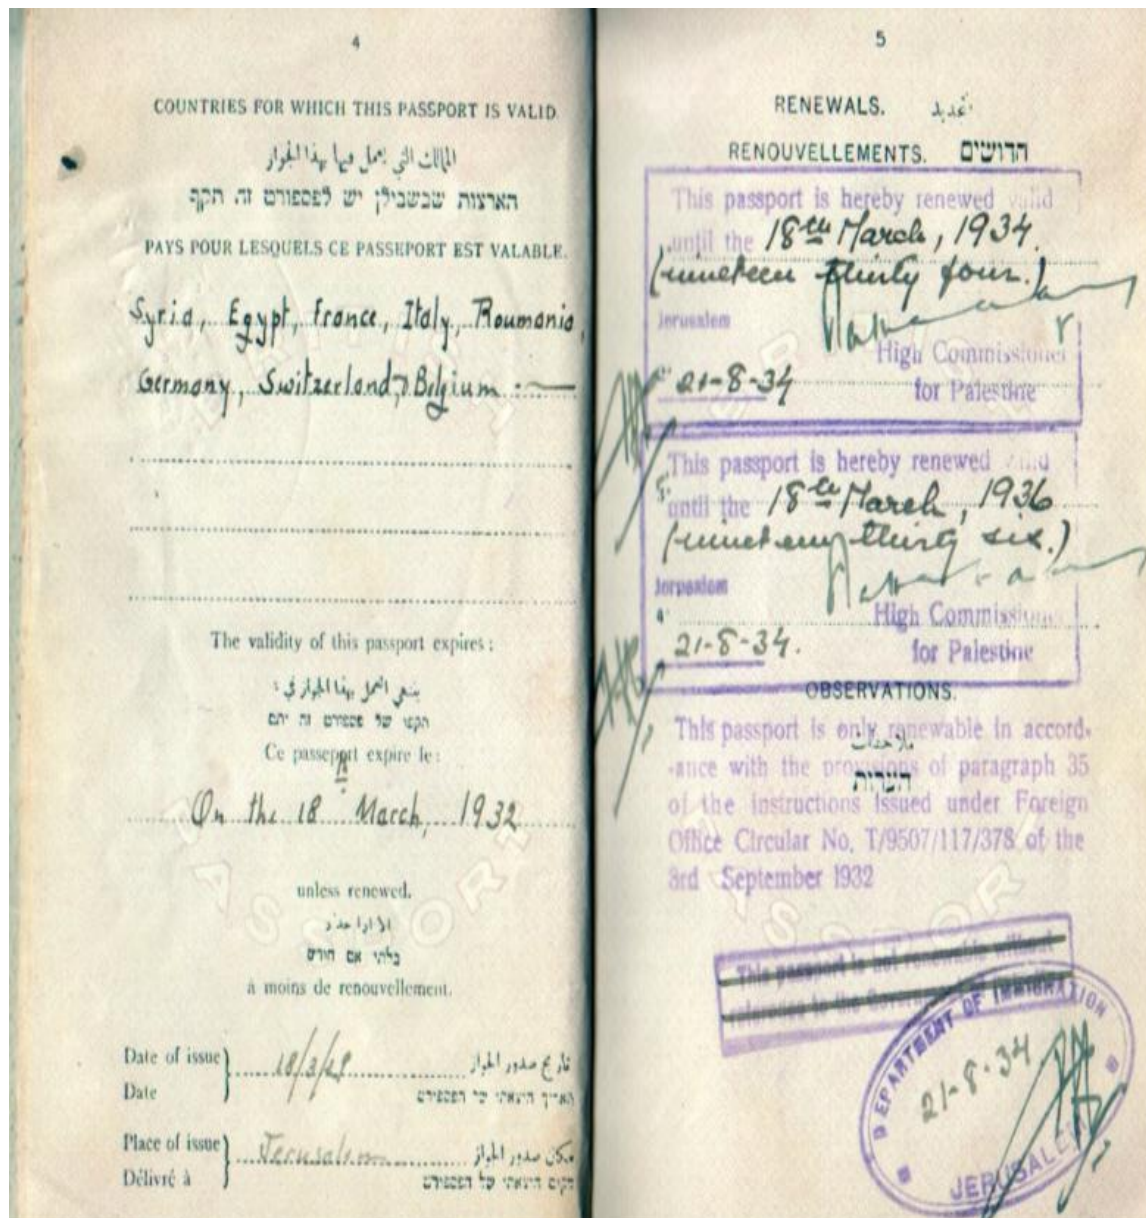 4
COUNTRIES FOR WHICH THIS PASSPORT IS VALID.
الممالك التي يعمل فيها بهذا الجواز
הארצות שבשבילן יש לפספורט זה תקף
PAYS POUR LESQUELS CE PASSEPORT EST VALABLE.
Syria, Egypt, France, Italy, Roumania,
Germany, Switzerland, Belgium
The validity of this passport expires:
ينتهي العمل بهذا الجواز في:
תקפו של פספורט זה יתם
Ce passeport expire le:
On the 18 March, 1932
unless renewed.
الا اذا جدد
בלתי אם חודש
à moins de renouvellement.
Date of issue
18/3/28
تاريخ صدور الجواز
Date
תאריך הוצאתו של הפספורט
Place of issue
Jerusalem
مكان صدور الجواز
Délivré à
מקום הוצאתו של הפספורט
5
RENEWALS. تجديد
RENOUVELLEMENTS. חדושים
This passport is hereby renewed valid
until the 18th March, 1934.
(nineteen thirty four.)
Jerusalem
High Commissioner
21-8-34
for Palestine
This passport is hereby renewed valid
until the 18th March, 1936
(nineteen thirty six.)
Jerusalem
High Commissioner
21-8-34.
for Palestine
OBSERVATIONS.
ملاحظات
הערות
This passport is only renewable in accord-
-ance with the provisions of paragraph 35
of the instructions issued under Foreign
Office Circular No. T/9507/117/378 of the
3rd September 1932
This passport is not renewable without
reference to the
DEPARTMENT OF IMMIGRATION
21-8-34
JERUSALEM